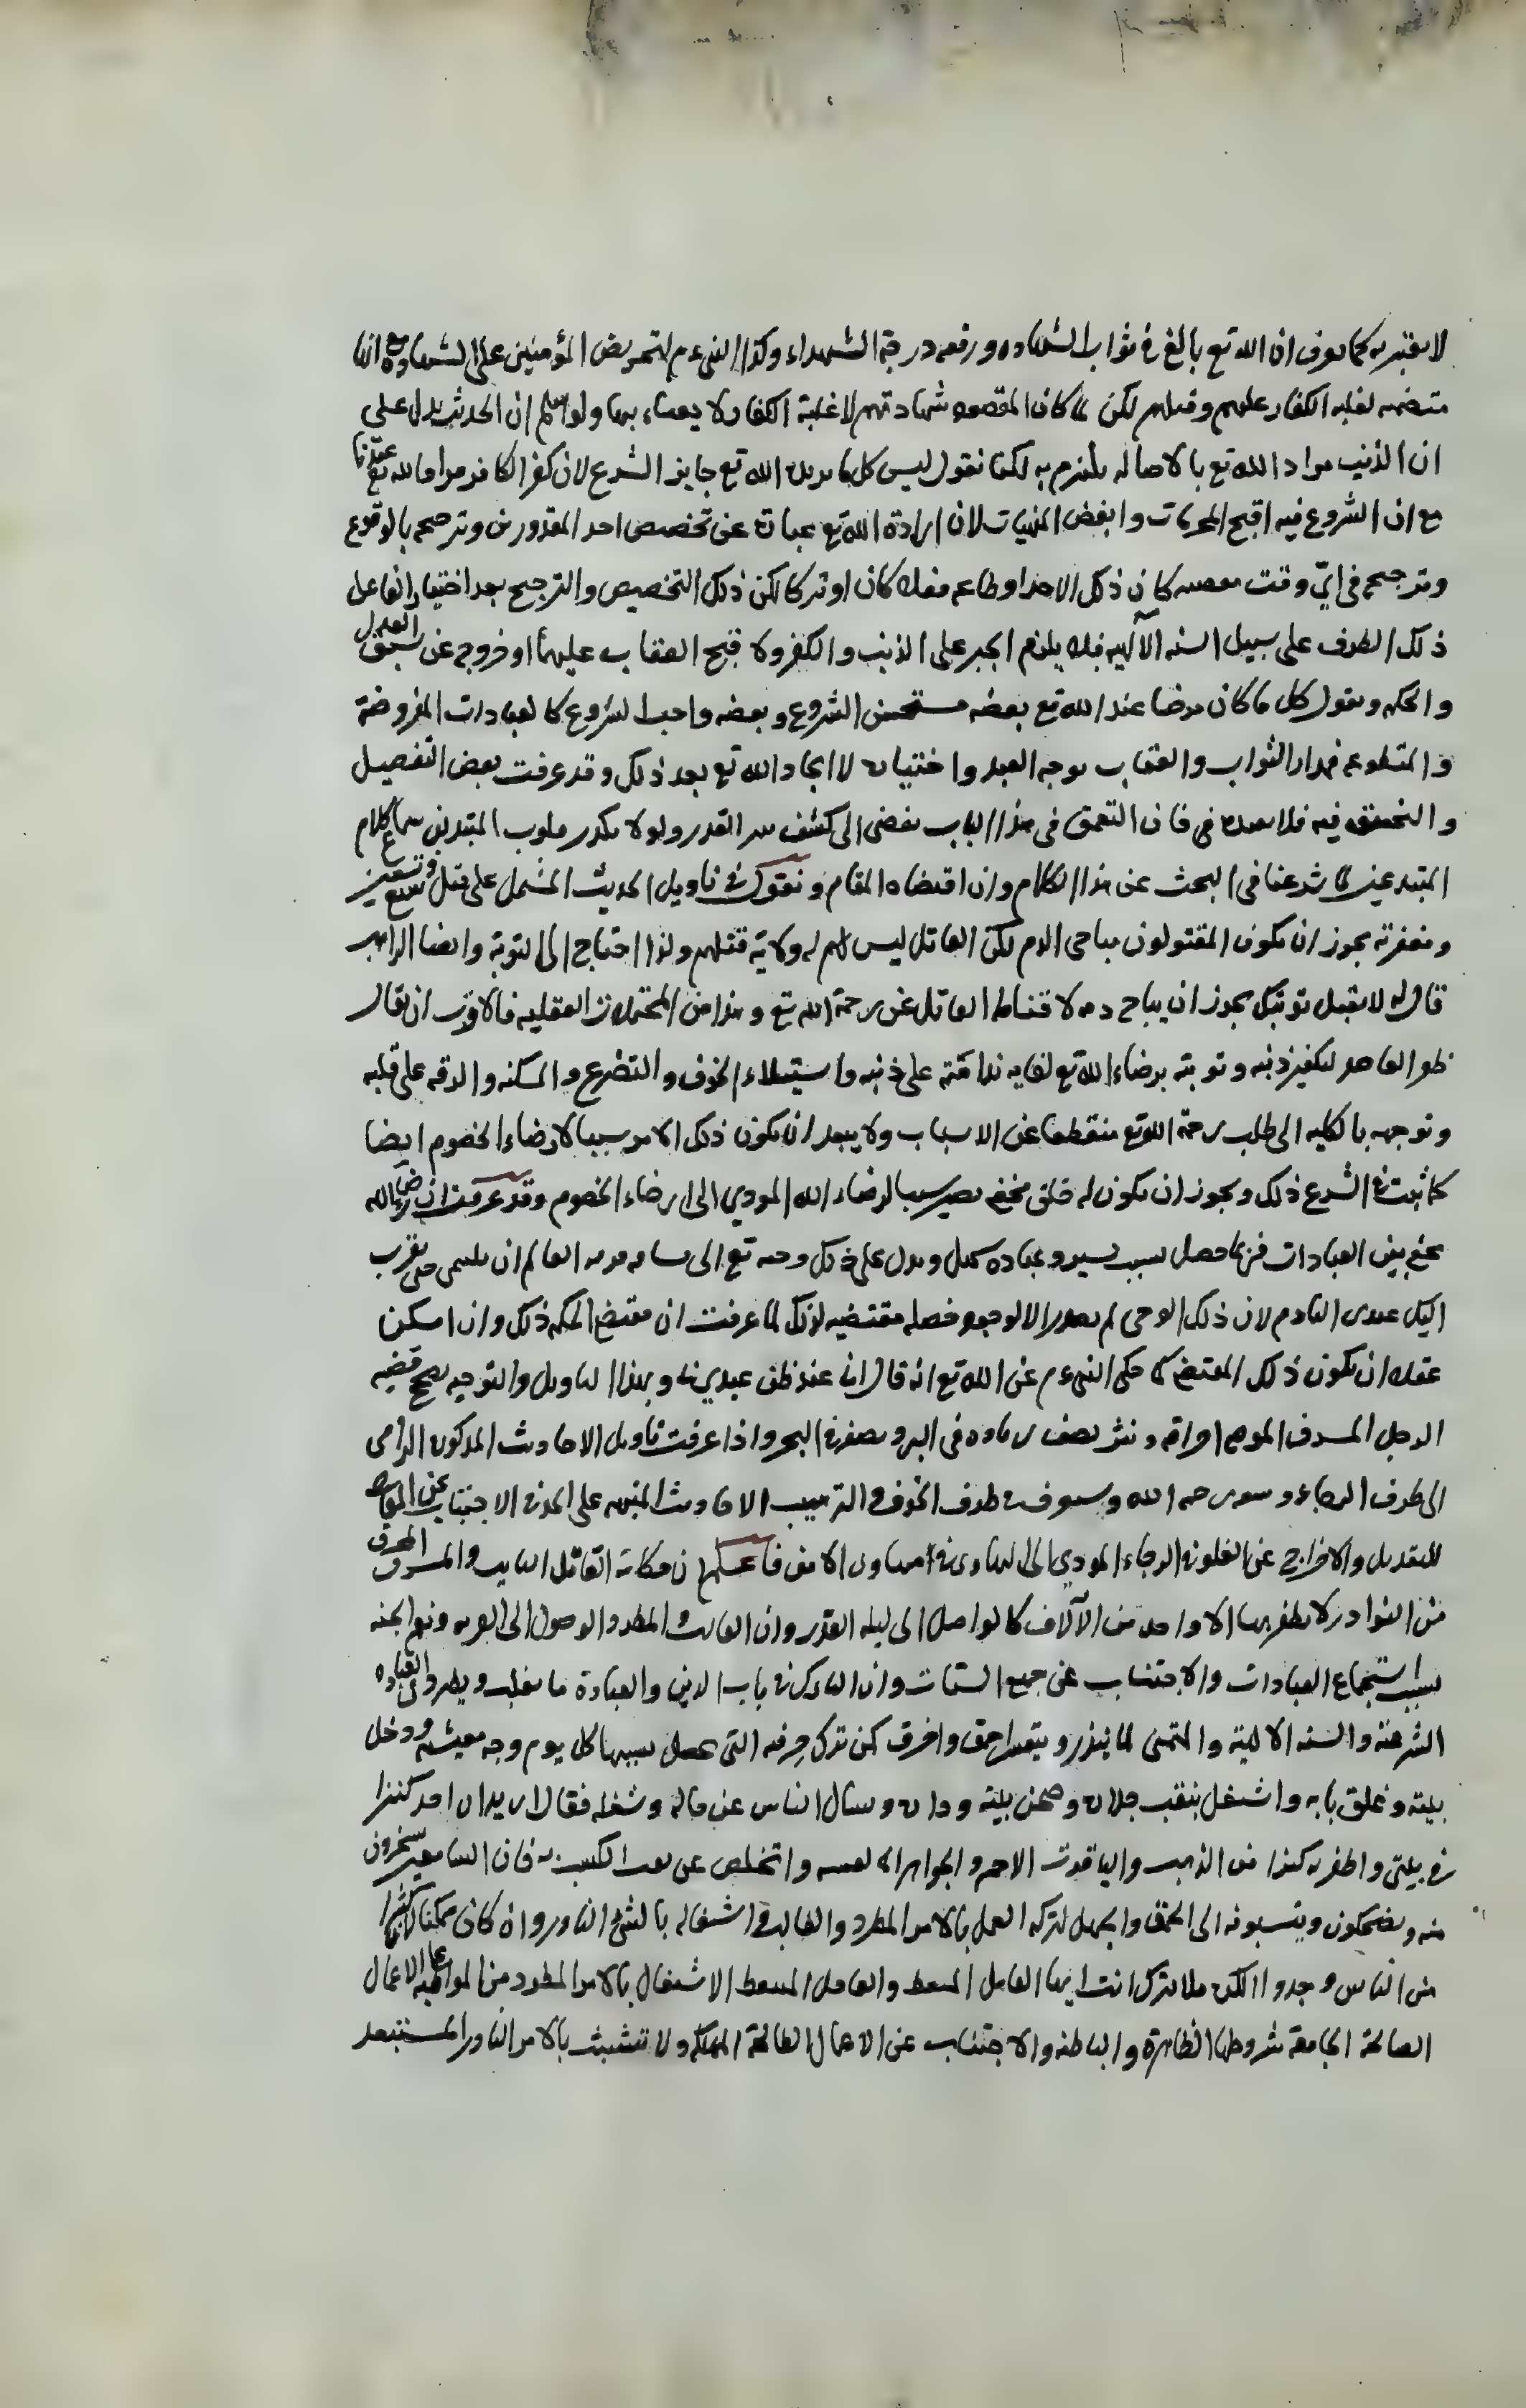 لا يعتبر به كما يعرف ان الله تع بالغ في ثواب الشهادة ورفعه درجة الشهداء وكذا النبي ءم لتحريض المؤمنين على الشهادة مع انها
متضمنه لغلبه الكفار عليهم وقتلهم لكن لما كان المقصود شهادتهم لا غلبة الكفار لا يعباء بها ولو سلم ان الحديث يدل على
ان الذنب مراد الله تع بالاصالة يلتزم به لكنا نقول ليس كل ما يريده الله تع جايز الشرع لان كفر الكافر مراد الله تع عندنا
مع ان الشروع فيه اقبح المحرمات وابغض المنهيات لان ارادة الله تع عبارة عن تخصيص احد المقدورين وترجيحه بالوقوع
وترجيحه في ايّ وقت معصيه كان ذلك الاحد او طاعه فعلا كان او تركا لكن ذلك التخصيص والترجيح بعد اختيار الفاعل
ذلك الطرف على سبيل السنه الآلهيه فلا يلزم الجبر على الذنب والكفر ولا قبح العقاب عليهما او خروج عن العدل
والحكمه ونقول كل ما كان مرضيا عند الله تع بعضه مستحسن الشروع وبعضه واجب الشروع كالعبادات المفروضة
والمتطوعه فمدار الثواب والعقاب توجه العبد واختياره لا ايجاد الله تع بعد ذلك وقد عرفت بعض التفصيل
والتحقيق فيه فلا نعيده فان التعمق في هذا الباب يفضي الى كشف سر القدر ولولا تكدر قلوب المبتدئين سماع كلام
المبتدعين لما شرعنا في البحث عن هذا الكلام وان اقتضاه المقام ونقول في تاويل الحديث المشتمل على قتل تسع وتسعين
ومغفرته يجوز ان يكون المقتولون مباحي الدم لكن القاتل ليس لهم له ولاية قتلهم ولذا احتاج الى التوبة وايضا الراهب
قال له لا يقبل توبتك يجوز ان يباح دمه لاقناط القاتل عن رحمة الله تع وهذا من المحتملات العقليه فالاقرب ان يقال
القاصد لتكفير ذنبه وتوبته برضاء الله تع لغايه ندامته على ذنبه واستيلاء الخوف والتضرع والمسكنه والرقه على قلبه
وتوجهه بالكليه الى طلب رحمة الله تع منقطعا عن الاسباب ولا يبعد ان يكون ذلك الامر سببا لارضاء الخصوم ايضا
كما ثبت في الشرع ذلك ويجوز ان يكون له خلق مخفي يصير سببا لرضاء الله المودي الى ارضاء الخصوم وقد عرفت ان رضا الله
مخفي بين العبادات فربما حصل بسبب يسير وعباده ويدل على ذلك وحيه تع الى
اليك عبدى النادم لان ذلك الوحي لم يصدر الا لوجود خصله مقتضيه لذلك لما عرفت ان مقتضى الحكمه ذلك وان امكن
عقلا ان يكون ذلك المقتضى كما حكى النبي ءم عن الله تع انه قال انا عند ظن عبدي بي وبهذا التاويل والتوجيه يصح قضيه
الرجل المسرف الموصي احراقه ونثر نصف رماده في البر ونصفه في البحر واذا عرفت تاويل الاحاديث المذكوره الرامي
الى طرف الرجاء وسعة رحمة الله وسنوف طرف الخوف والترهيب الاحاديث المنبهه على الحذر الاجتناب عن المعاصي
للتعديل والاخراج عن الغلو في الرجاء المودي الى التهاون فاعلم ان حكاية القاتل التايب والمسرف المحرق
من النوادر لا يظفر بها الا واحد من الآلاف كالواصل الى ليله القدر وان الغالب المطرد الوصول الى القربه ونعيم الجنه
بسبب استجماع العبادات والاجتناب عن جميع السيئات وان المدرك في باب الدين والعبادة ما يغلب ويطرد العباده
الشرعية والسنه الالهية والمتمنى لما يندر ويتعسر احمق واخرق كمن ترك حرفه التي يحصل بسببها كل يوم وجه معيشته ودخل
بيته وغلق بابه واشتغل بنقب جداره وصحن بيته وداره وسال الناس عن حاله وشغله فقال اريد ان اجد كنزا
في بيتي واظفر به كنزا من الذهب والياقوت الاحمر والجواهر واتخلص عن تعب الكسب فان السامعين يسخرون
منه ويضحكون وينسبونه الى الحمق والجهل لتركه العمل بالامر المطرد والغالب واشتغاله بالشيء النادر وان كان ممكنا لان كثيرا
من الناس وجدوا الكنز فلا تترك انت ايها العامل والعاقل الاشتغال بالامر المطرد من المواظبه على الاعمال
الصالحة الجامعة شروطها الظاهرة والباطنه والاجتناب عن الاعمال الطالحة المهلكه ولا تتشبث بالامر النادر المستبعد